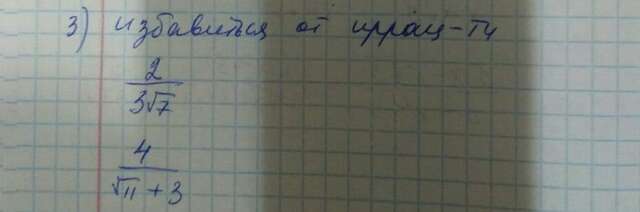 3) избавиться от иррац-ти
2
3√7
4
√11 + 3